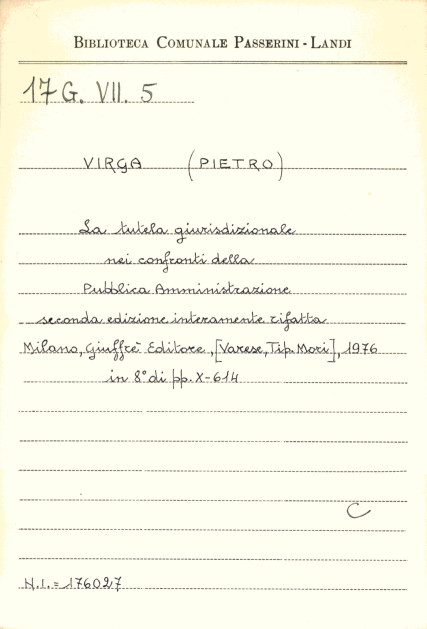 BIBLIOTECA COMUNALE PASSERINI - LANDI
17 G. VII. 5
VIRGA (PIETRO)
La tutela giurisdizionale
nei confronti della
Pubblica Amministrazione
seconda edizione interamente rifatta
Milano, Giuffrè Editore, [Varese, Tip. Mori], 1976
in 8° di pp. X-614
C
N.I. = 176027